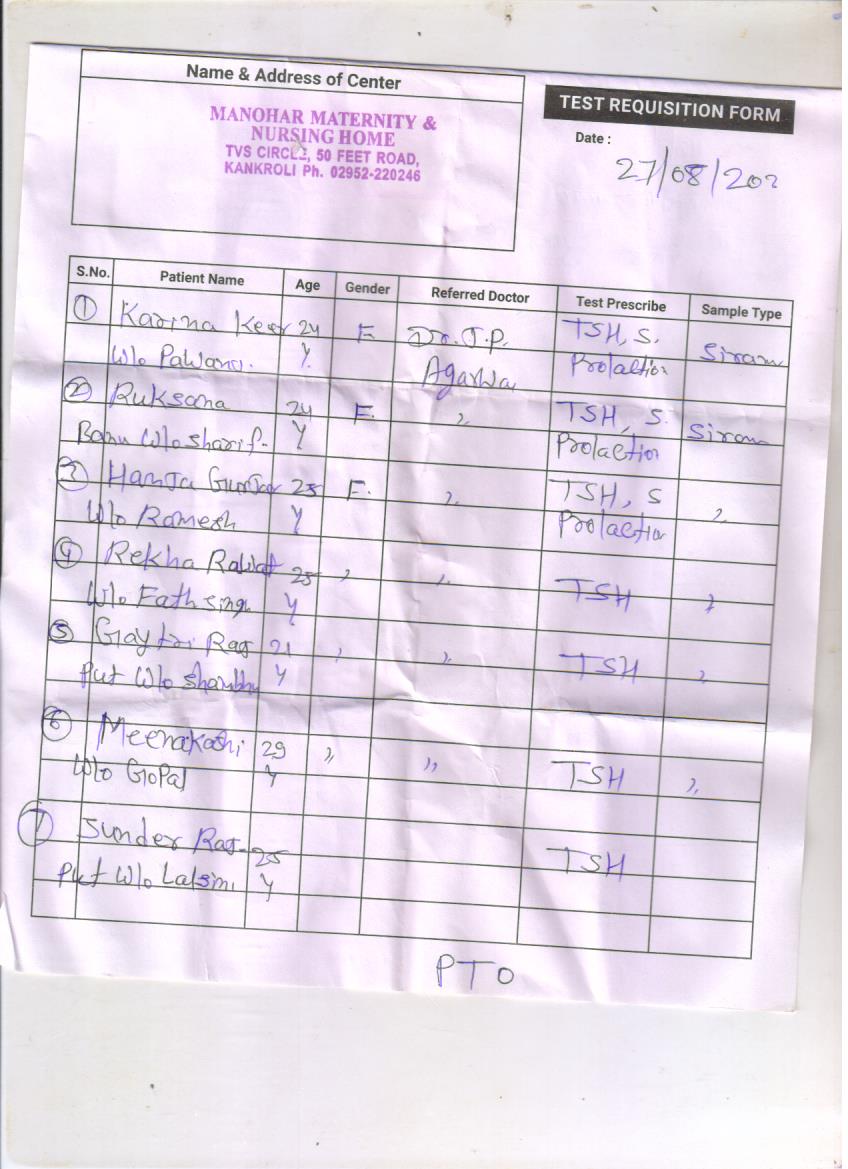 Name & Address of Center
MANOHAR MATERNITY &
NURSING HOME
TVS CIRCLE, 50 FEET ROAD,
KANKROLI Ph. 02952-220246
TEST REQUISITION FORM
Date :
27/08/202
S.No. Patient Name Age Gender Referred Doctor Test Prescribe Sample Type
1 Karina Keer 24 F Dr. J.P. TSH, S. Siram
W/o Pawan Y. Agarwa Prolaction
2 Ruksana 24 F. ,, TSH, S. Siram
Banu W/o Sharif. Y Prolaction
3 Hanja Gurjar 25 F. ,, TSH, S ,,
W/o Ramesh Y Prolaction
4 Rekha Rawat 25 ,, ,, TSH ,,
W/o Fath singh Y
5 Gaytri Raj 21 ,, ,, TSH ,,
Put W/o Shambhu Y
6 Meenakashi 29 ,, ,, TSH ,,
W/o Gopal Y
7 Sunder Raj- 25 TSH
Put W/o Laksmi Y
PTO